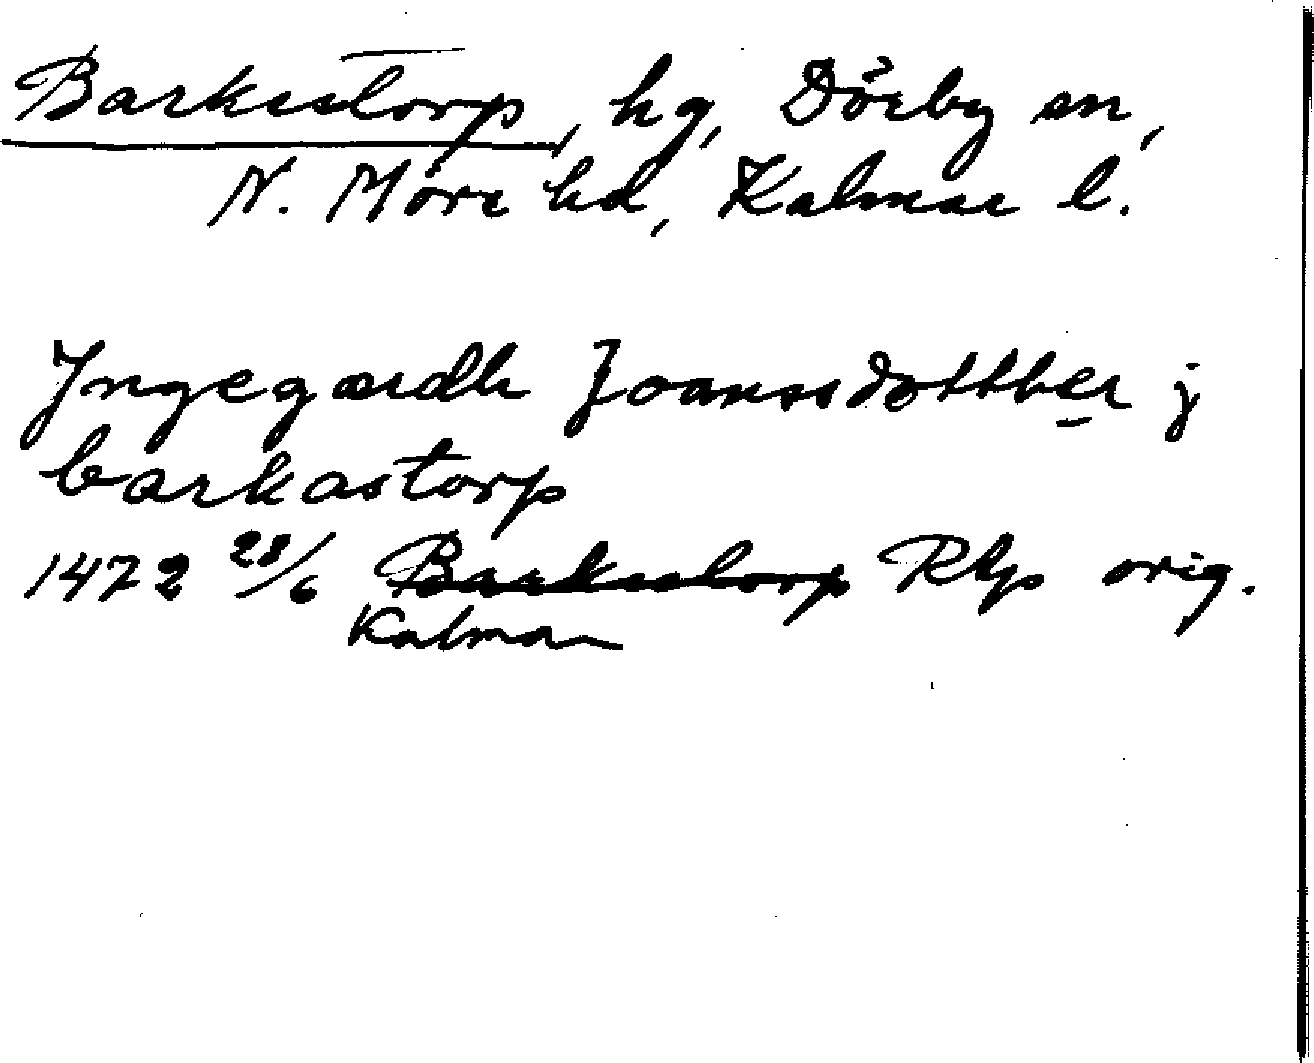 Barkestorp, hg, Dörby sn,
N. Möre hd, Kalmar l.
Jngegærdh Joanssdotther j
barkastorp
1472 28/6 Barkestorp RAp orig.
Kalmar